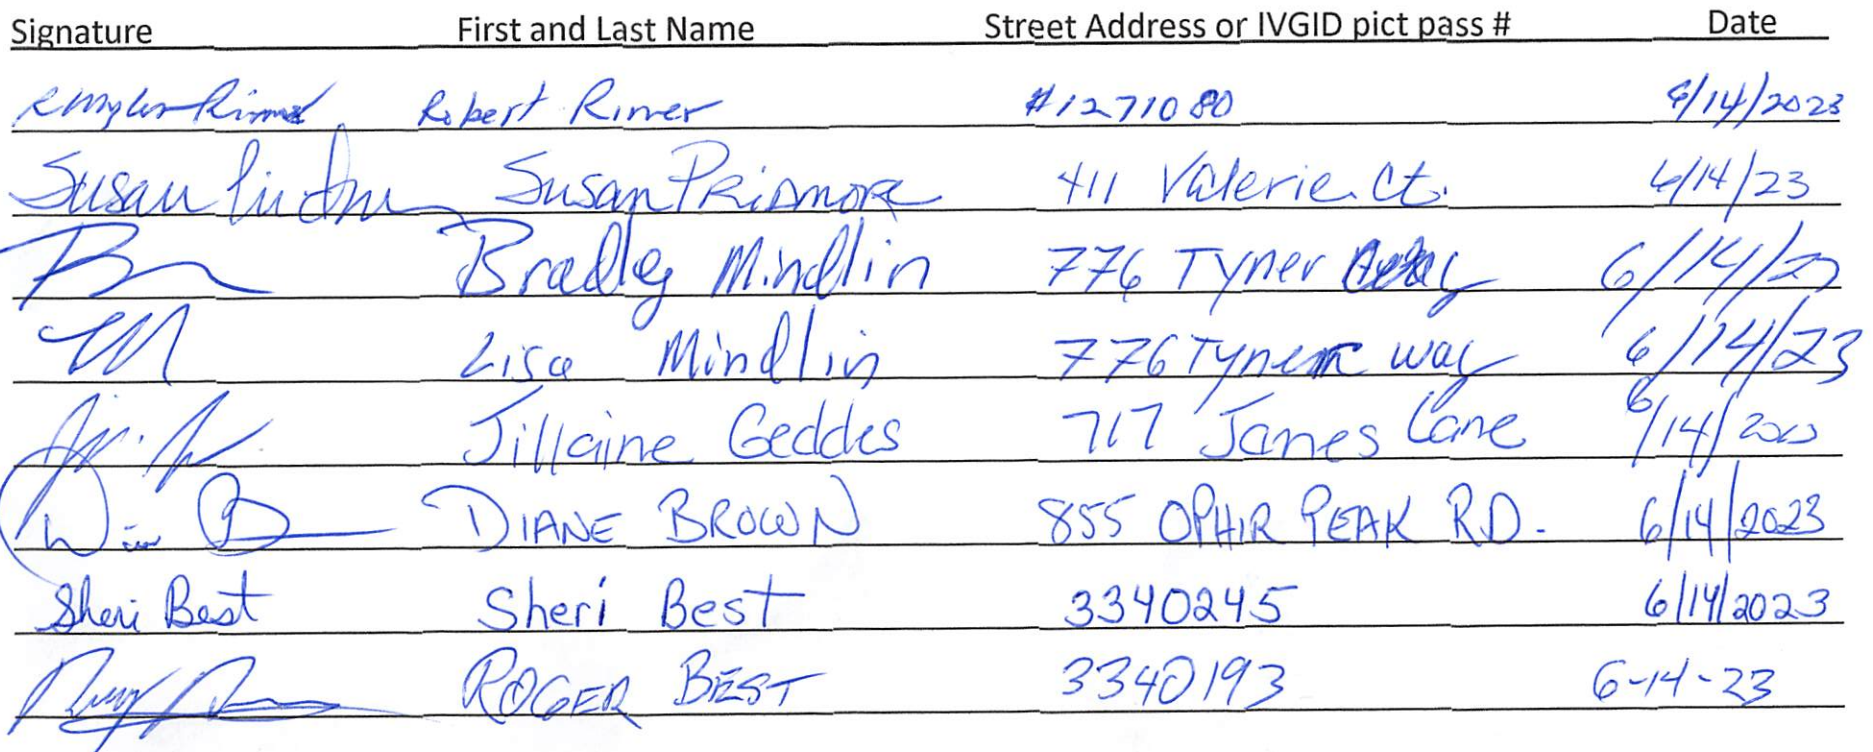 Signature First and Last Name Street Address or IVGID pict pass # Date
Robert Rimer #1271080 6/14/2023
Susan Susan Pridmore 411 Valerie Ct. 6/14/23
Bradley Mindlin 776 Tyner Way 6/14/23
Lisa Mindlin 776 Tyner way 6/14/23
Jillaine Geddes 717 James Lane 6/14/2023
DIANE BROWN 855 OPHIR PEAK RD. 6/14/2023
Sheri Best Sheri Best 3340245 6/14/2023
ROGER BEST 3340193 6-14-23